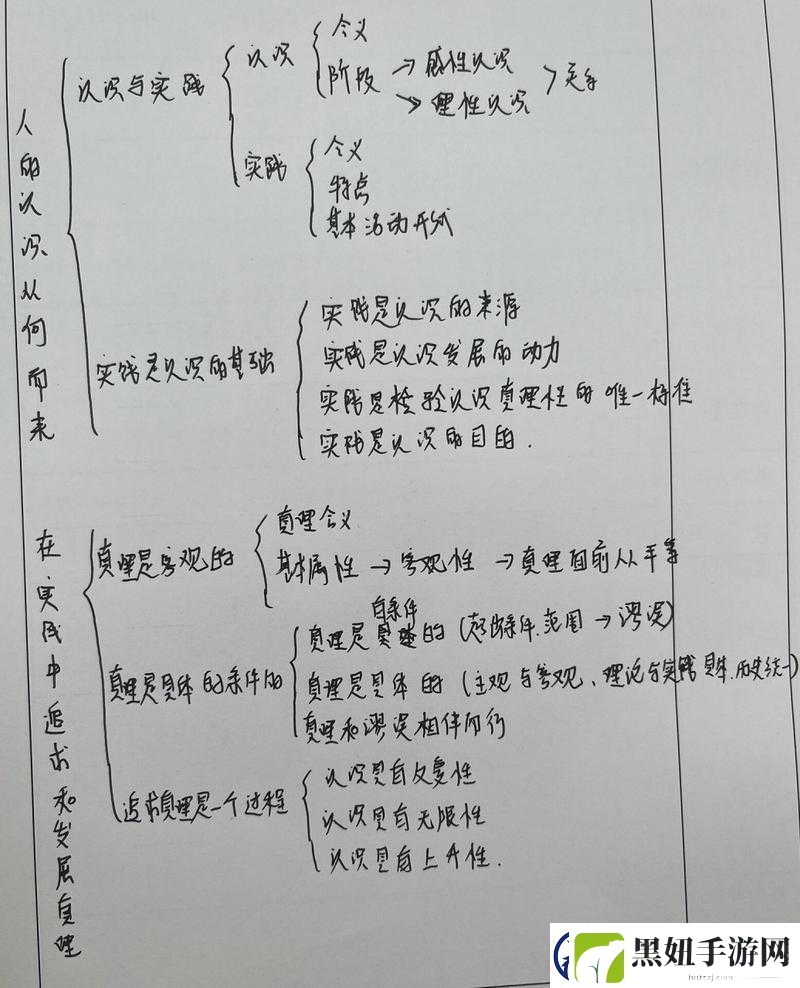 人的认识从何而来
认识与实践
认识
含义
阶段 → 感性认识
→ 理性认识 > 关系
实践
含义
特点
基本活动形式
实践是认识的基础
实践是认识的来源
实践是认识发展的动力
实践是检验认识真理性的唯一标准
实践是认识的目的.
在实践中追求和发展真理
真理是客观的
真理含义
基本属性 → 客观性 → 真理面前人人平等
真理是具体的条件的
真理是有条件的 (超出条件、范围 → 谬误)
真理是具体的 (主观与客观、理论与实践具体、历史统一)
真理和谬误相伴而行
追求真理是一个过程
认识具有反复性
认识具有无限性
认识具有上升性.
黑妞手游网